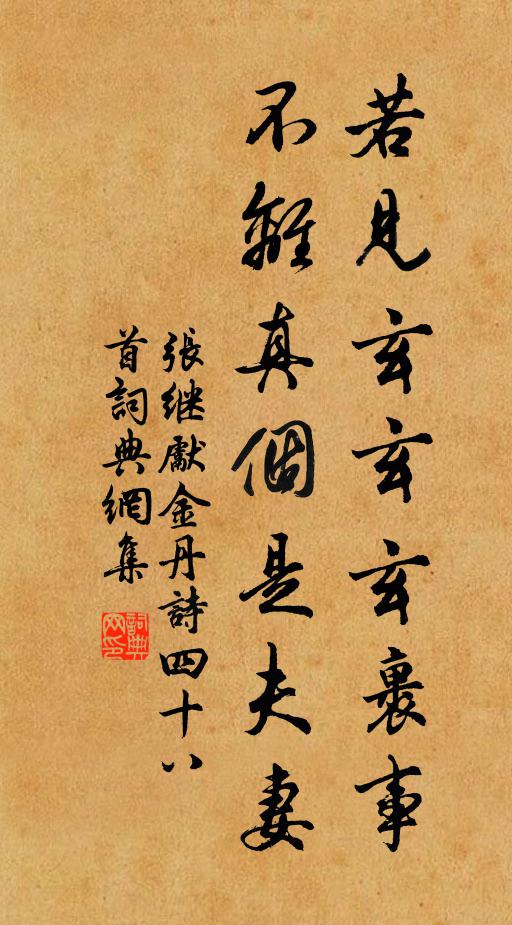 若見玄玄玄裹事
不離真個是夫妻
張继獻金丹詩四十八
首詞典網集
詞典网印